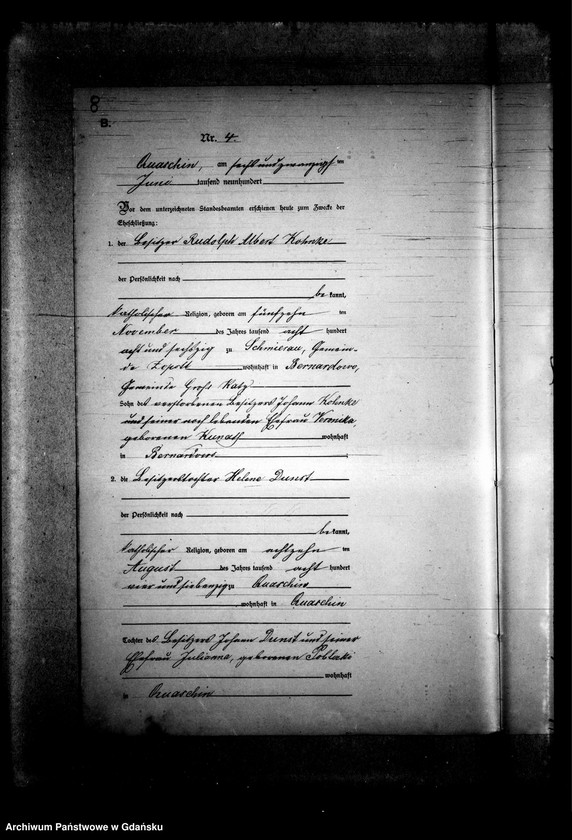 8
B.
Nr. 4.
Quaschin, am sechsundzwanzigsten
Juni tausend neunhundert
Vor dem unterzeichneten Standesbeamten erschienen heute zum Zwecke der
Eheschließung:
1. der Besitzer Rudolph Albert Kohnke
der Persönlichkeit nach
be kannt,
katholischer Religion, geboren am fünfzehn ten
November des Jahres tausend acht hundert
acht und sechszig zu Schmierau, Gemein-
de Zopott wohnhaft in Bernardowo,
Gemeinde Groß Katz
Sohn des verstorbenen Besitzers Johann Kohnke
und seiner noch lebenden Ehefrau Veronika,
geborenen Kunath wohnhaft
in Bernardowo
2. die Besitzerstochter Helene Dunst
der Persönlichkeit nach
be kannt,
katholischer Religion, geboren am achtzehn ten
August des Jahres tausend acht hundert
vier und siebenzig zu Quaschin
wohnhaft in Quaschin
Tochter des Besitzers Johann Dunst und seiner
Ehefrau Julianna, geborenen
wohnhaft
in Quaschin
Archiwum Państwowe w Gdańsku